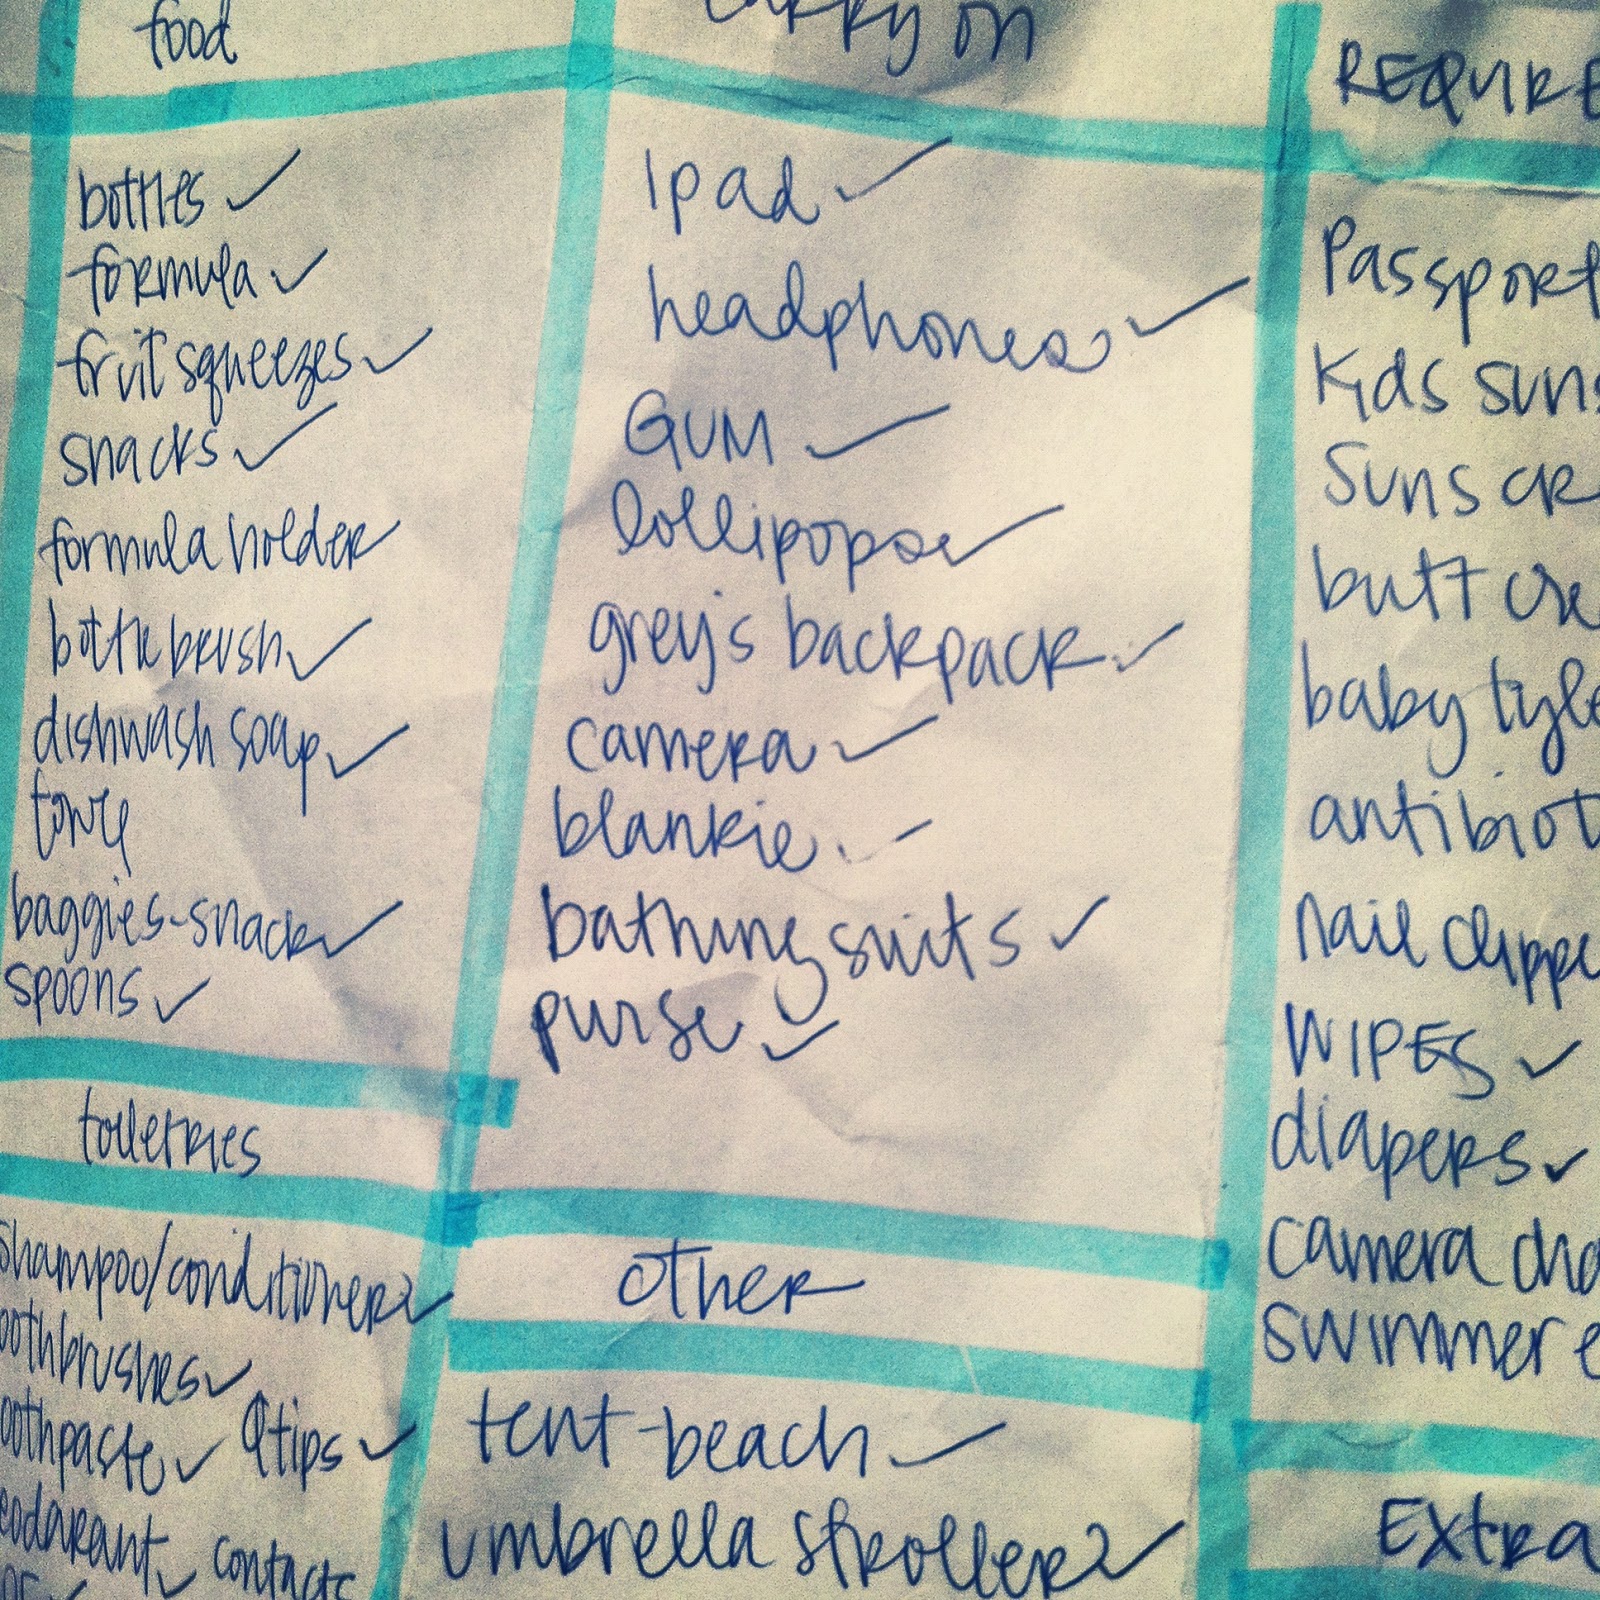 food
bottles ✓
formula ✓
fruit squeezes ✓
snacks ✓
formula holder ✓
bottle brush ✓
dishwash soap ✓
baggies-snack ✓
spoons ✓
toiletries
shampoo/conditioner ✓
oothbrushes ✓
oothpaste ✓ Qtips ✓
eodarant ✓ contacts
carry on
Ipad ✓
headphones ✓
GUM ✓
lollipops ✓
grey's backpack ✓
camera ✓
blankie ✓
bathing suits ✓
purse ✓
other
tent-beach ✓
umbrella stroller ✓
REQUIRE
Passport
Kids suns
Sunscr
butt cre
baby tyle
antibiot
nail clippe
WIPES ✓
diapers ✓
camera cha
swimmer e
Extra